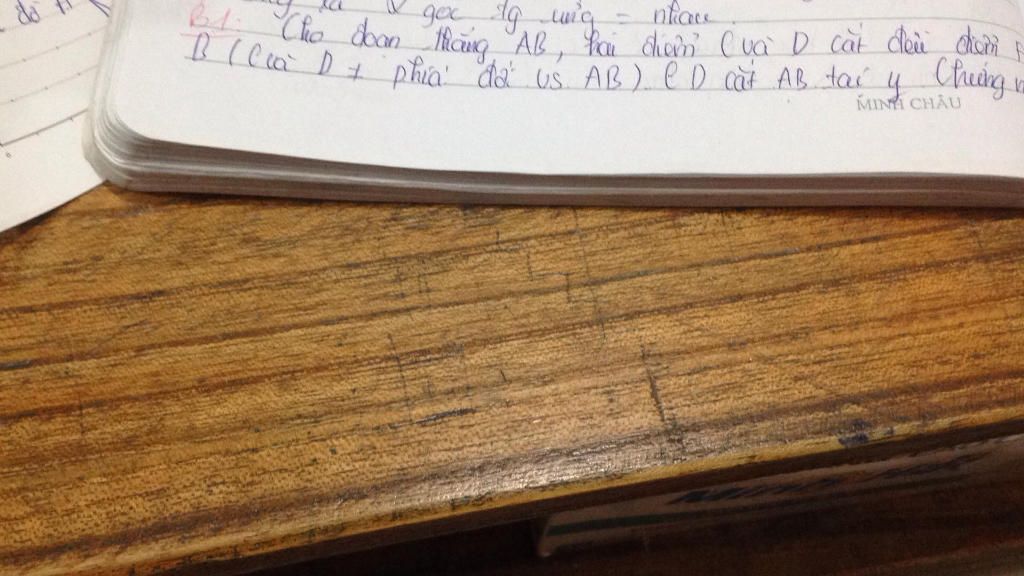 góc tg ứng = nhau
B1. Cho đoạn thẳng AB, hai điểm C và D cát đều điểm
B (C và D ≠ phía đối vs AB). CD cát AB tại y Chứng
MINH CHÂU